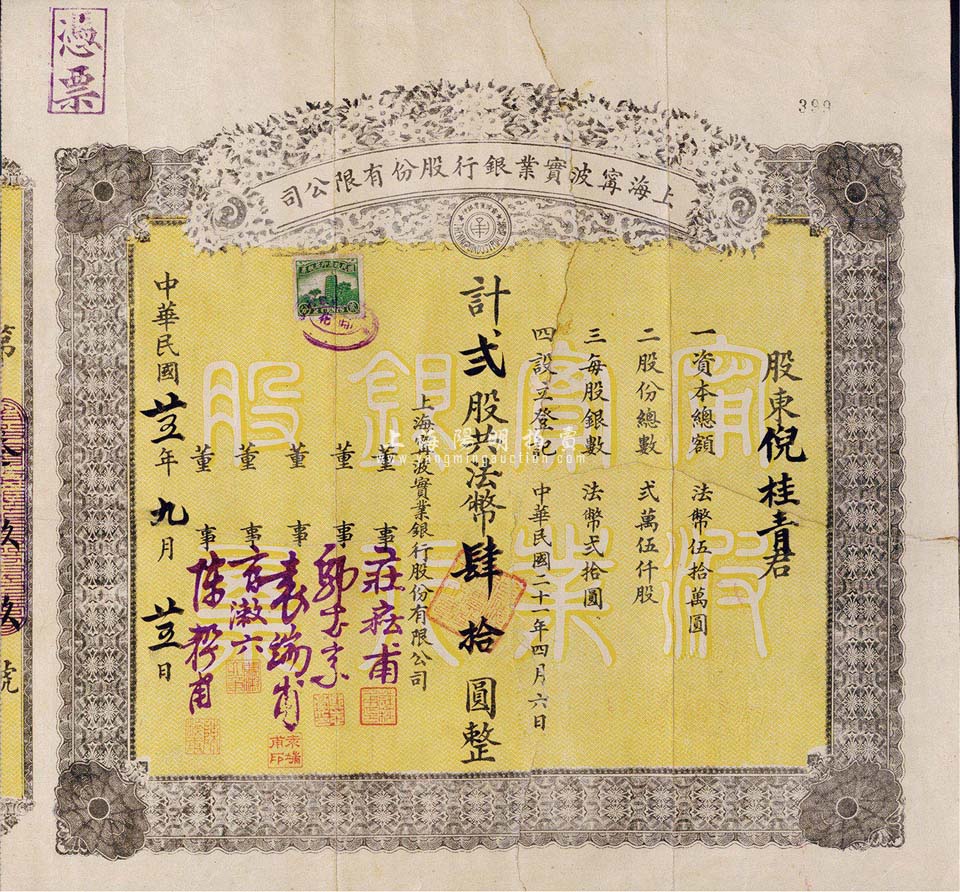 憑票
399
上海甯波實業銀行股份有限公司
股東倪桂青君
一資本總額 法幣伍拾萬圓
二股份總數 弍萬伍仟股
三每股銀數 法幣弍拾圓
四設立登記 中華民國二十一年四月六日
計弍股共法幣肆拾圓整
上海甯波實業銀行股份有限公司
董事
董事
董事 袁端甫
董事
董事
中華民國廿五年九月廿五日
甯波實業銀行股票
第
玖玖號
上海陽明拍賣
www.yangmingauction.com